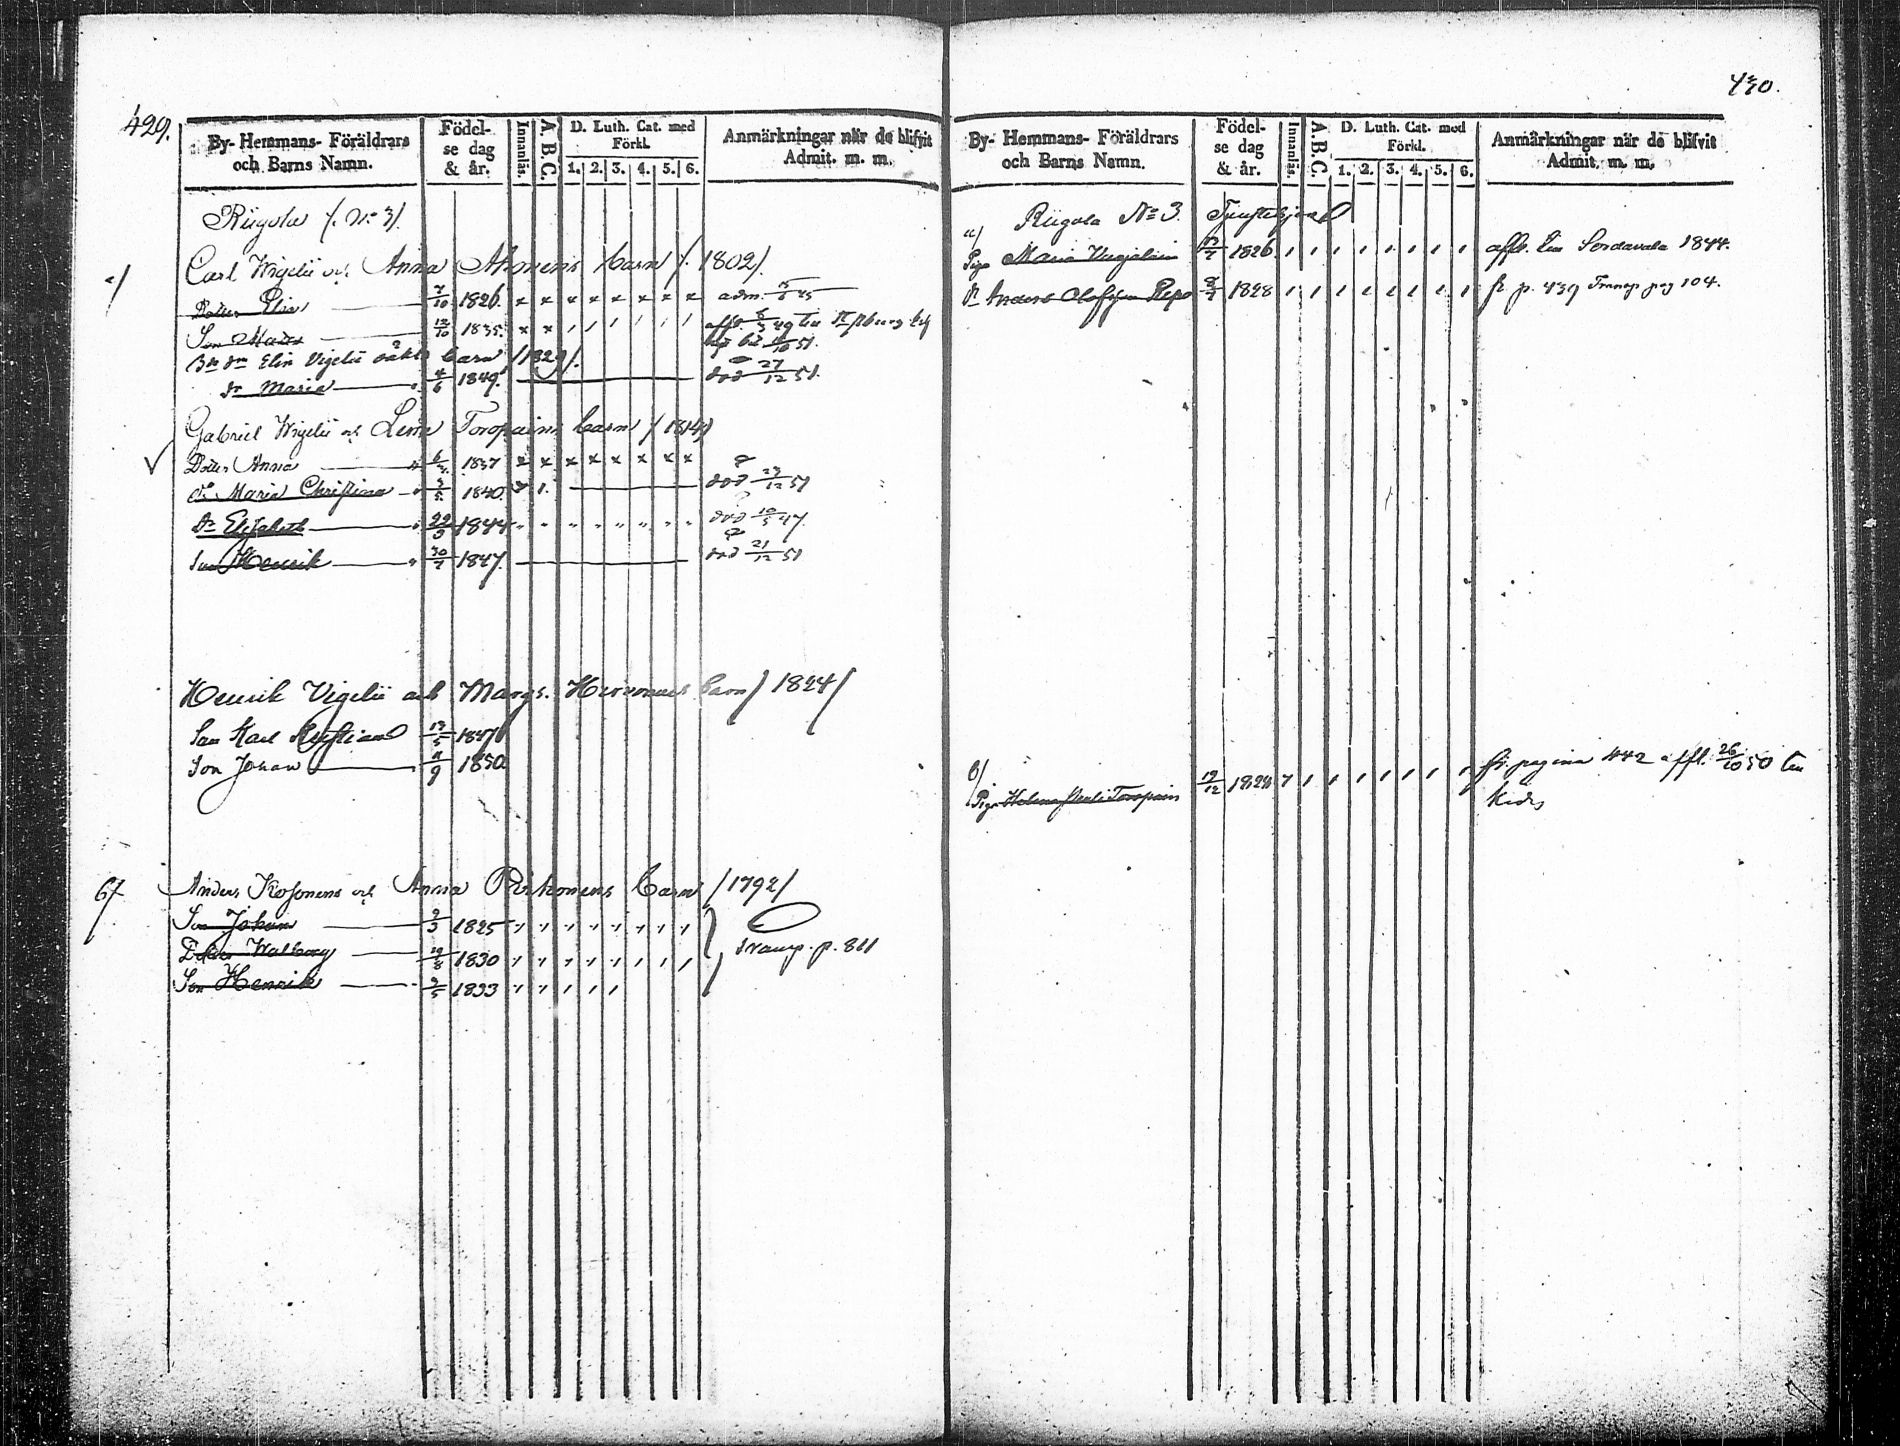 429.
By- Hemmans- Föräldrars och Barns Namn.
Födel-se dag & år.
Innanläs.
A.B.C.
D. Luth. Cat. med Förkl.
1. 2. 3. 4. 5. 6.
Anmärkningar når de blifvit Admit. m. m.
Riigola /. No 3/.
a/
Carl Wigelii och Anna Ahonens barn /. 1802/.
Dotter Elin 7/10 1826. x x x x x x x x adm.
Son 12/10 1835.
Elin Vigelii barn /1829/.
dr Maria 4/6 1849. död 27/12 51.
Gabriel Wigelii och Lena Toropains barn / 1814/
Dotter Anna 1837 x x x x x x x x
dr Maria Christina 3/5 1840. död 23/12 51
dr Elisabeth 22/3 1844. död 10/5 47.
Son Henrik 30/7 1847. död 21/12 51
Henrik Vigelii och Margr. Hirvonens barn / 1824/
Son Karl Kristian 13/5 1847
Son Johan 11/9 1850
b/
Anders Kosonens och Anna Pirhonens barn /1792/
Son Johan 2/3 1825
Dotter Walborg 19/8 1830 transp. p. 811
Son Henrik 2/5 1833
430.
By- Hemmans- Föräldrars och Barns Namn.
Födel-se dag & år.
Innanläs.
A.B.C.
D. Luth. Cat. med Förkl.
1. 2. 3. 4. 5. 6.
Anmärkningar når de blifvit Admit. m. m.
a/ Riigola No 3. Tjenstehjon
Piga Maria 1826. affl. till Sordavala 1844.
dr Anders Olofsson Repo 1828 fr p. 439 Transp pag 104.
b/
Piga Helena Toropain 12/12 1828 fr. pagina 442 affl. 26/10 50 till
Kides